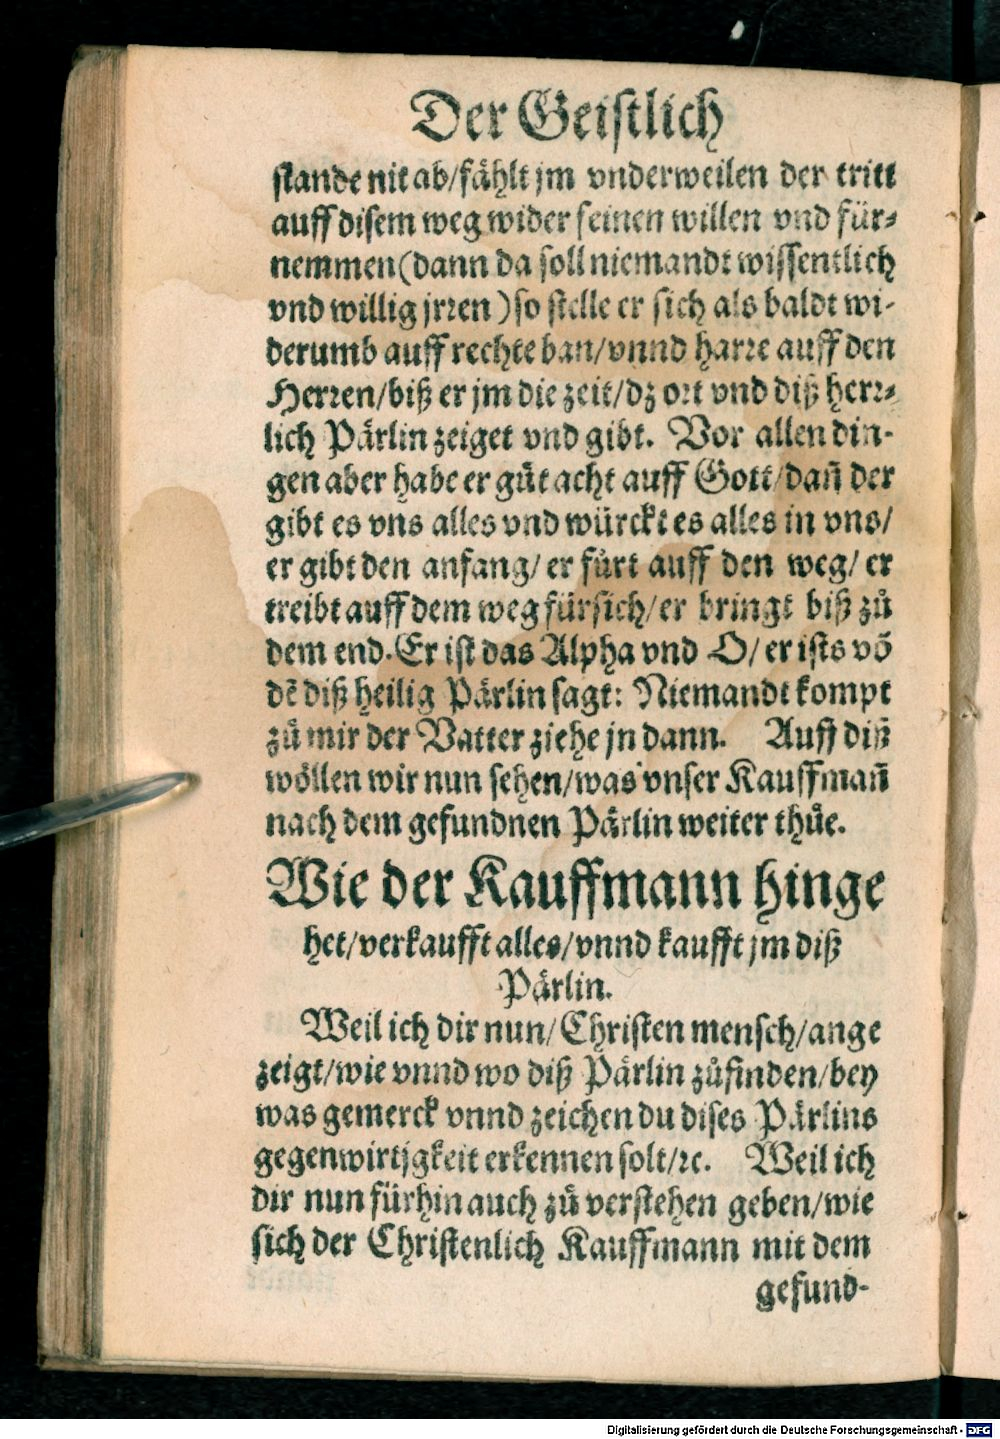 Der Geistlich
stande nit ab/fählt jm vnderweilen der tritt
auff disem weg wider seinen willen vnd für⸗
nemmen(dann da soll niemandt wissentlich
vnd willig jrꝛen )so stelle er sich als baldt wi-
derumb auff rechte ban/vnnd harꝛe auff den
Herꝛen/biß er jm die zeit/dz oꝛt vnd diß herꝛ⸗
lich Pärlin zeiget vnd gibt. Vor allen din-
gen aber habe er gůt acht auff Gott/dañ der
gibt es vns alles vnd würckt es alles in vns/
er gibt den anfang/ er fürt auff den weg/ er
treibt auff dem weg fürsich/er bringt biß zů
dem end. Er ist das Alpha vnd O/ er ists võ
dẽ diß heilig Pärlin sagt: Niemandt kompt
zů mir der Vatter ziehe jn dann. Auff diß
wöllen wir nun sehen/was vnser Kauffmañ
nach dem gefundnen Pärlin weiter thůe.
Wie der Kauffmann hinge
het/verkaufft alles/vnnd kaufft jm diß
Pärlin.
Weil ich dir nun/Christen mensch/ange
zeigt/wie vnnd wo diß Pärlin zůfinden/bey
was gemerck vnnd zeichen du dises Pärlins
gegenwirtjgkeit erkennen solt/ꝛc. Weil ich
dir nun fürhin auch zů verstehen geben/wie
sich der Christenlich Kauffmann mit dem
gefund-
Digitalisierung gefördert durch die Deutsche Forschungsgemeinschaft - DFG